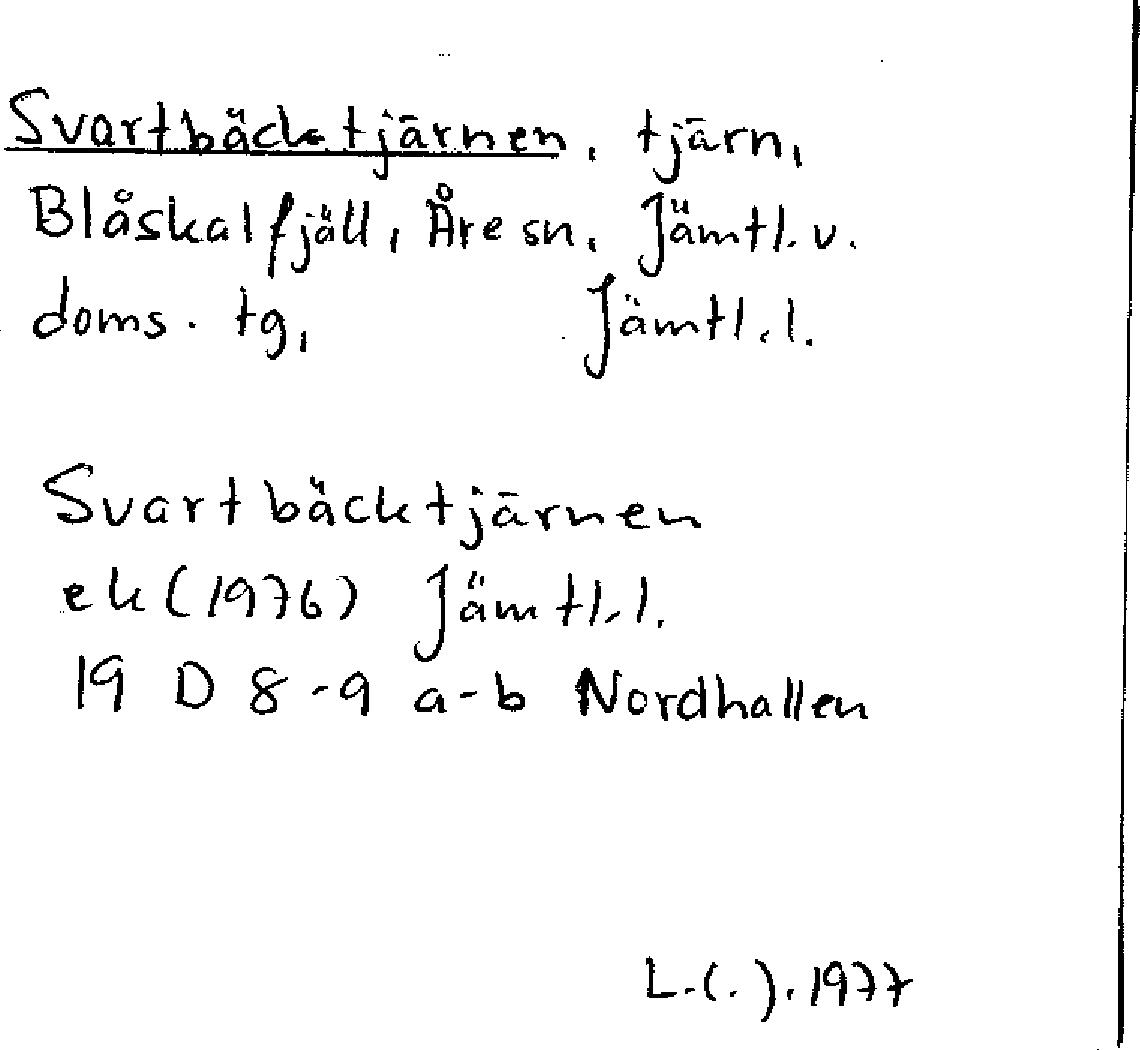 Svartbäcktjärnen, tjärn,
Blåskalfjäll, Åre sn, Jämtl. v.
doms. tg, Jämtl. l.
Svartbäcktjärnen
ek (1976) Jämtl. l.
19 D 8-9 a-b Nordhallen
L.(.). 1977